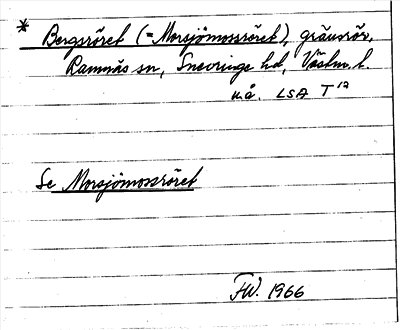 * Bergsröret (= Morsjömossröret), gränsrör,
Ramnäs sn, Snevringe hd, Västm. l.
u.å. LSA T 12
Se Morsjömossröret
FW. 1966